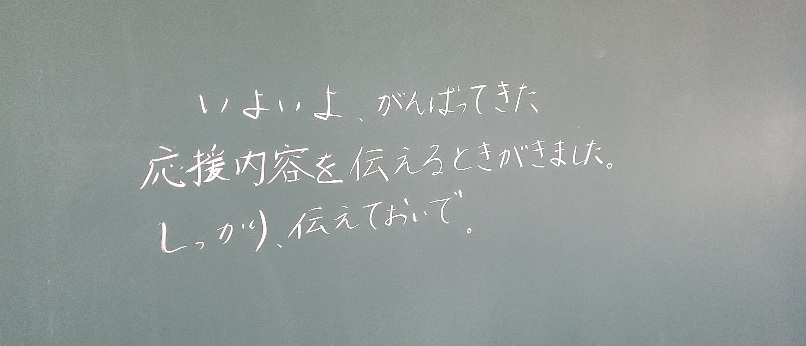 いよいよ、がんばってきた
応援内容を伝えるときがきました。
しっかり、伝えておいで。